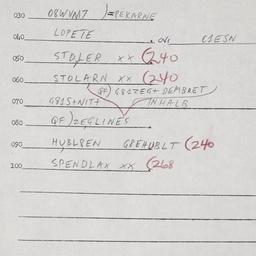 030 08WVM7 )=PEKARNE
040 LOPETE . OVC C1ESN
050 STOLER xx (240
060 STOLARN xx (240
QF) G81ZEG+ DEMBRET
070 G81S+NIT+ INHALB
080 QF)ZEGLINES
090 HUBL8EN GREHUBLT (240
100 SPENDLAX xx (268